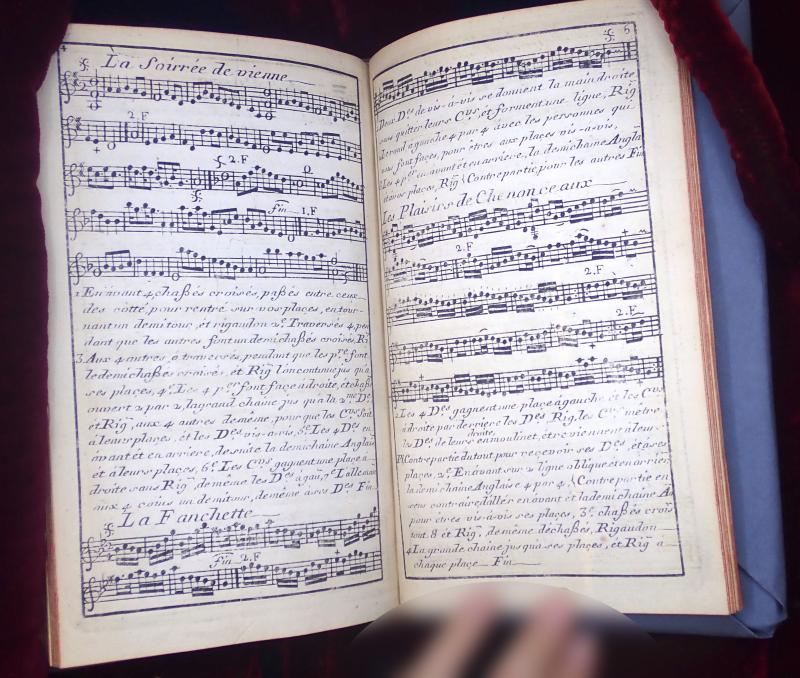 4
La Soirrée de vienne
2.F
2.F
fin 1.F
1. En avant 4, chaßés croisés, paßés entre ceux
des côtté, pour rentré sur vos places, en tour-
nant un demi tour, et rigaudon 2.º Traversés 4, pen
dant que les autres font un demi chaßés croisé, Ri
3. Aux 4 autres, à traversés, pendant que les p.re font
le demi chaßés croisés, et Rig. l'on continue jus qu'à
ses places, 4.º Les 4 p.er font face à droite, et chaß
ouvert 2 par 2, la grand chaine jus qu'à la 2.me D.e
et Rig. aux 4 autres de même, pour que les C.ers soit
à leur places, et les D.es vis-à-vis, 5.º Les 4 D.es en
avant et en arriere, de suite la demi chaine Anglais
et à leurs places, 6.º Les C.ers gagnent une place à
droite sans Rig. de même les D.es à gau, 7.º
aux 4 coins un demi tour, de même à vos D.es Fin
La Fanchette
fin 2.F
5
Deux D.es de vis-à-vis se donnent la main droite
sans quitter leurs C.ers, et forment une ligne, Rig
le rond à gauche 4 par 4 avec les personnes qui
vous font faces, pour êtres aux places vis-à-vis,
2. Les 4 p.er en avant et en arriere, la demi chaine Angla
à vos places, Rig. Contre partie pour les autres Fin
Les Plaisirs de Chenonceaux
2.F
2.F
2.F
1. Les 4 D.es gagnent une place à gauche, et les C.ers
à droite par derriere les D.es Rig. les C.ers metre
droite,
les D.es de leurs en moulinet, et revienent à leur
Contre partie du tout pour recevoir ses D.es, et à ses
places, 2.º En avant sur 2 ligne oblique et en arrier
la demi chaine Anglaise 4 par 4, Contre partie en
sens contraire, d'aller en avant et la demi chaine An
pour êtres vis-à-vis ses places, 3.º chaßés crois
tout 8 et Rig. de même déchaßés, Rigaudon
4. La grande chaine jus qu'à ses places, et Rig. à
chaque place Fin